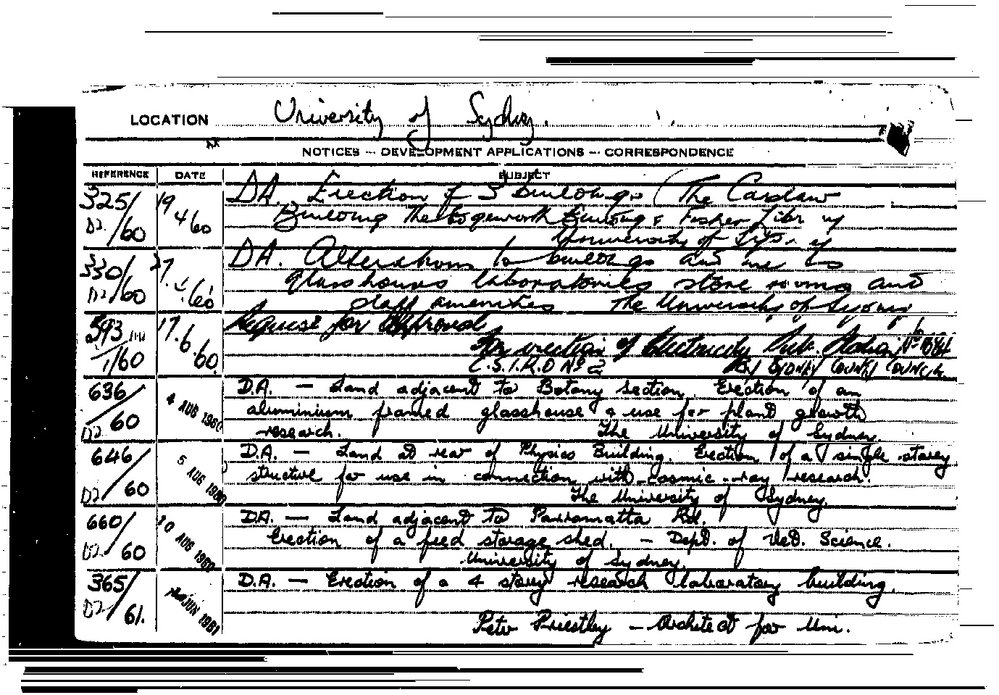 LOCATION University of Sydney.
NOTICES — DEVELOPMENT APPLICATIONS — CORRESPONDENCE
REFERENCE DATE SUBJECT
325/ 19 DA. Erection of 3 buildings (The Carslaw
D2./60 4 60 Building The Edgeworth Building & Fisher Library
University of
330/ DA. Alterations to buildings and use as
D2/60 glasshouses laboratories store rooms and
staff amenities The University of Sydney
393 17. Request for Approval
1/60 6. 60. For erection of Electricity Sub. Station
C.S.I.R.O Nº 2 By SYDNEY COUNTY COUNCIL
636/ 4 AUG 1960 D.A. — Land adjacent to Botany section. Erection of an
D2./60 aluminium framed glasshouse & use for plant growth
research. The University of Sydney.
646/ 5 AUG 1960 D.A. — Land at rear of Physics Building. Erection of a single storey
D2/60 structure for use in connection with cosmic-ray research.
The University of Sydney.
660/ AUG 1960 D.A. — Land adjacent to Parramatta Rd.
D2/60 Erection of a feed storage shed. — Dept. of Vet. Science.
University of Sydney.
365/ JUN 1961 D.A. — Erection of a 4 storey research laboratory building.
D2/61. Peter Priestley — Architect for Uni.